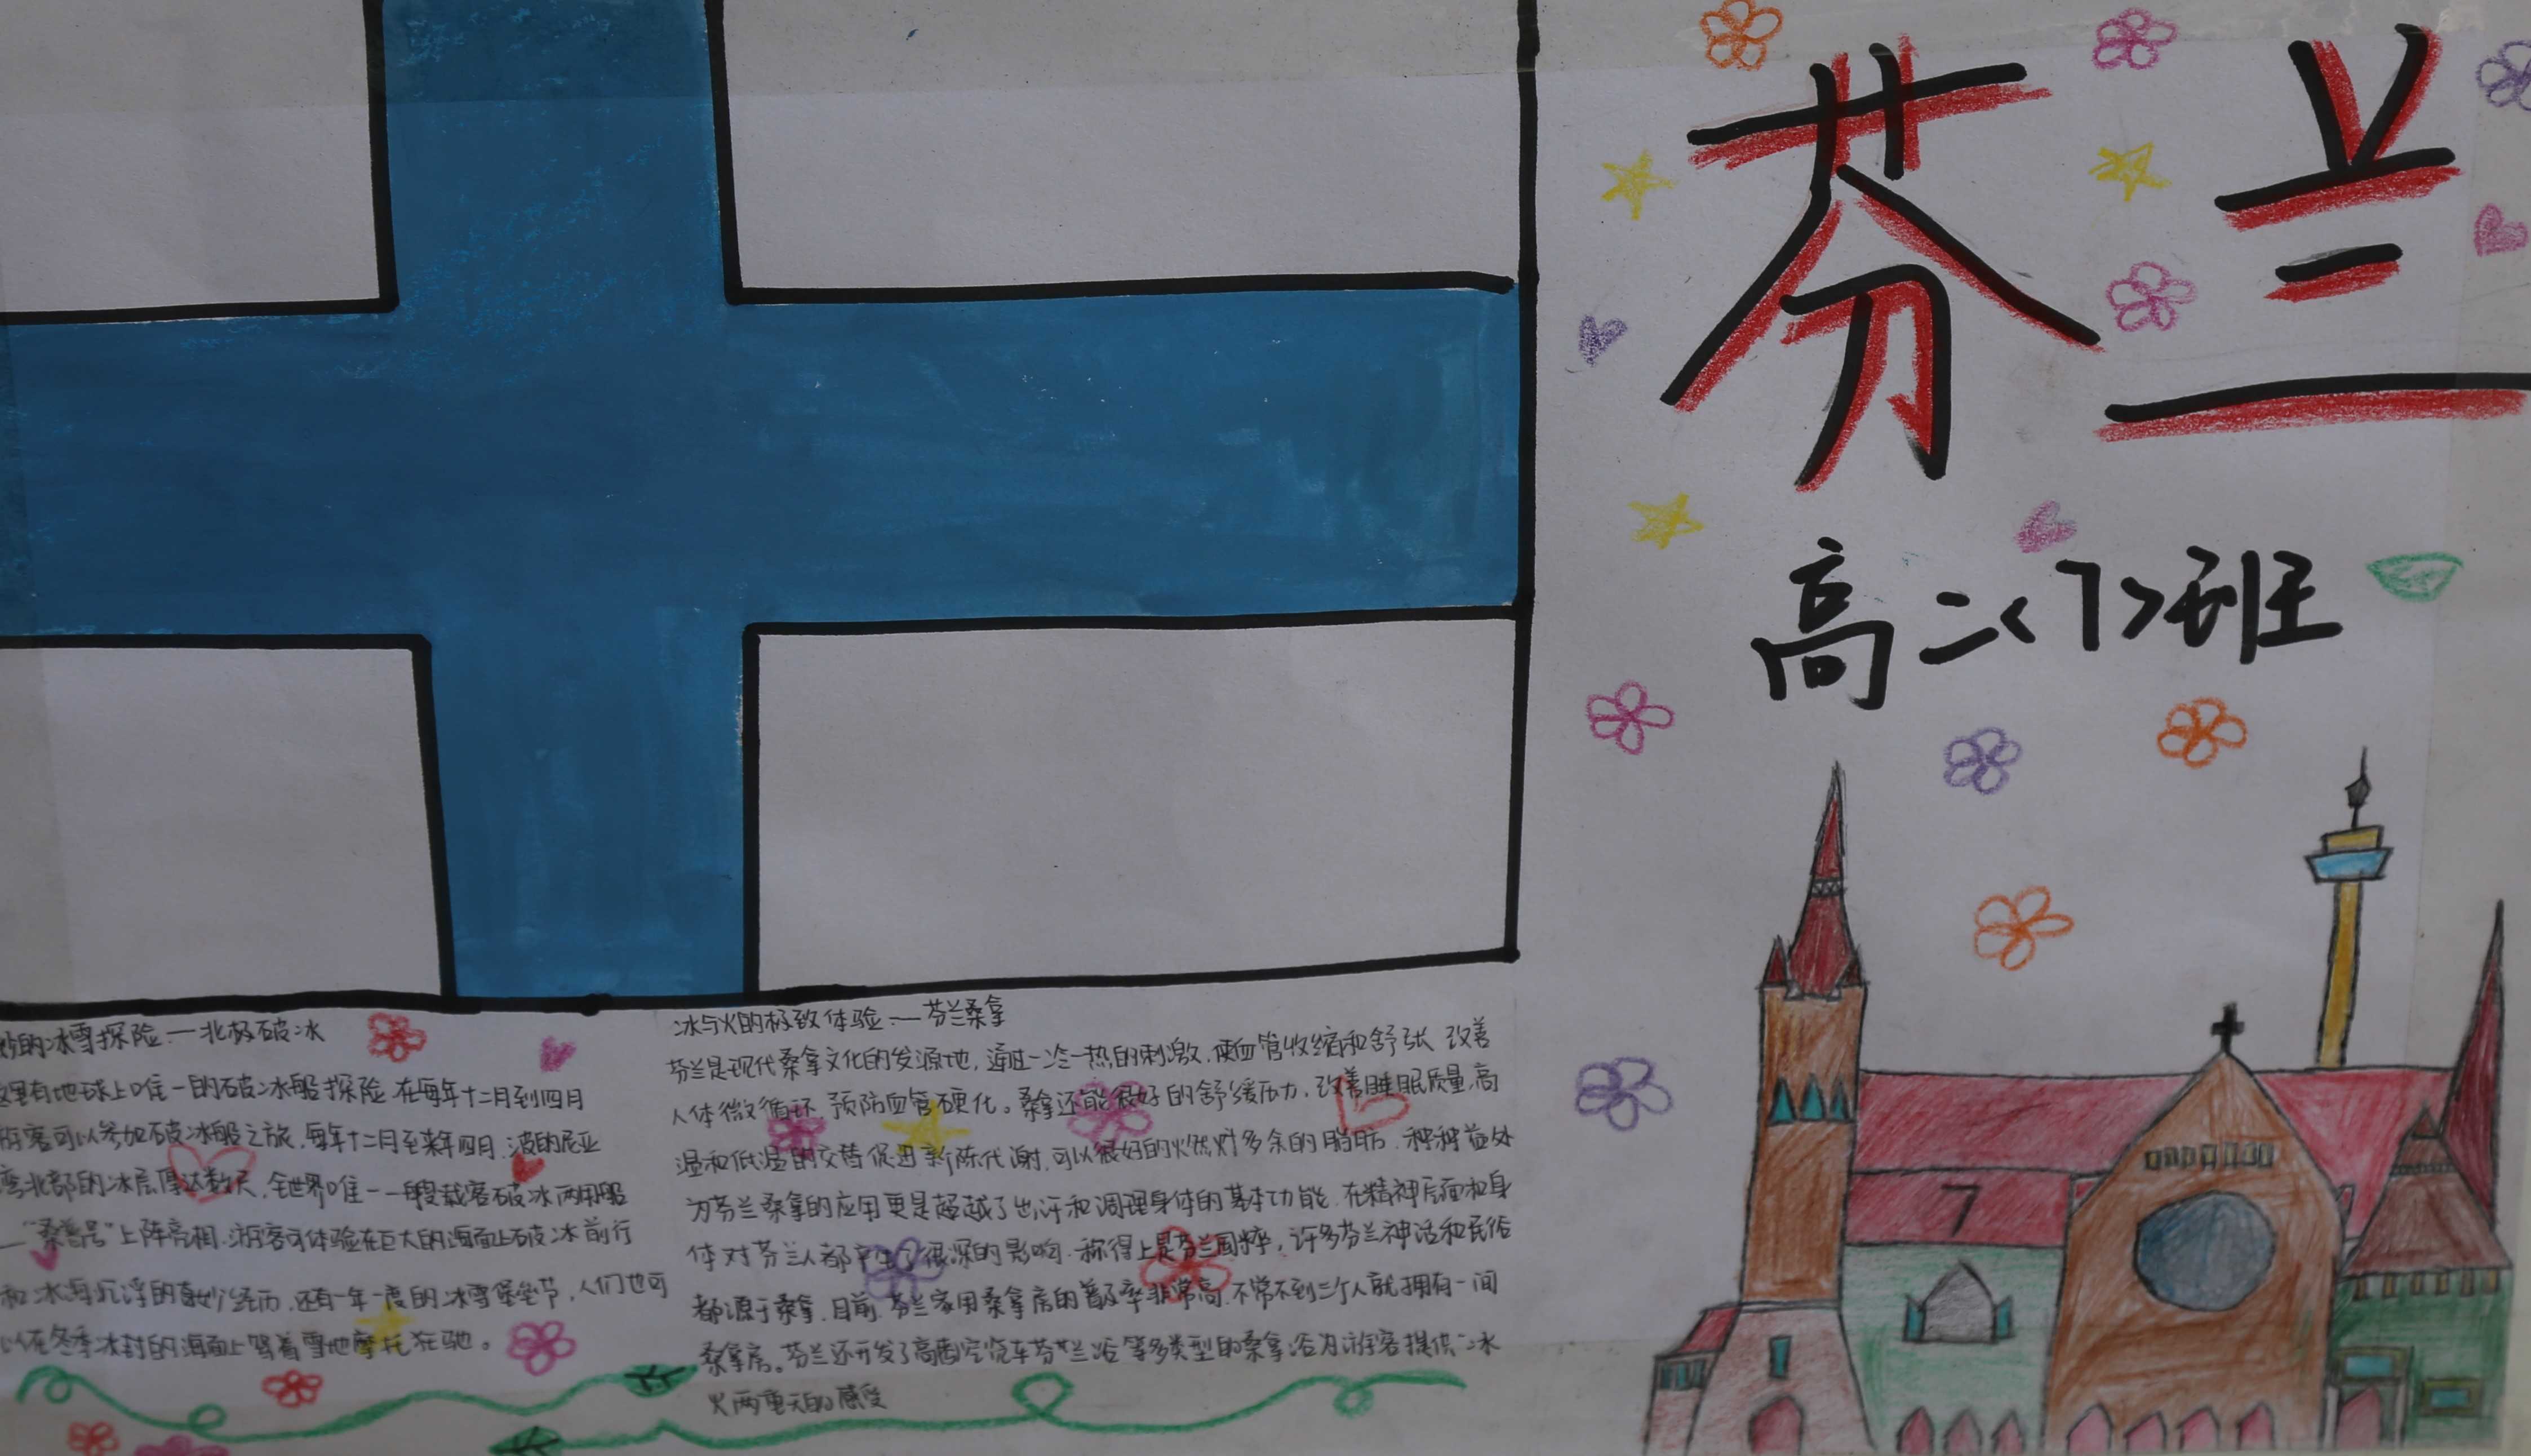 芬兰
高二<7>班
妙的冰雪探险——北极破冰
这里有地球上唯一的破冰船探险.在每年十二月到四月
游客可以参加破冰船之旅.每年十二月至来年四月.波的尼亚
湾北部的冰层厚达数尺,全世界唯一一艘载客破冰两用船
—"桑普号"上阵亮相.游客可体验在巨大的海面上破冰前行
和冰海沉浮的奇妙经历.还有一年一度的冰雪堡垒节,人们也可
以在冬季冰封的海面上驾着雪地摩托狂驰。
冰与火的极致体验——芬兰桑拿
芬兰是现代桑拿文化的发源地,通过一冷一热的刺激.使血管收缩和舒张 改善
人体微循环 预防血管硬化。桑拿还能很好的舒缓压力,改善睡眠质量,高
温和低温的交替促进新陈代谢,可以很好的燃烧多余的脂肪.种种益处
为芬兰桑拿的应用更是超越了出汗和调理身体的基本功能.在精神层面和身
体对芬兰人都产生了很深的影响.称得上是芬兰国粹,许多芬兰神话和民俗
都源于桑拿.目前.芬兰家用桑拿房的普及率非常高.不常不到三个人就拥有一间
桑拿房。芬兰还开发了高空缆车芬兰浴等多类型的桑拿浴为游客提供冰
火两重天的感受
7